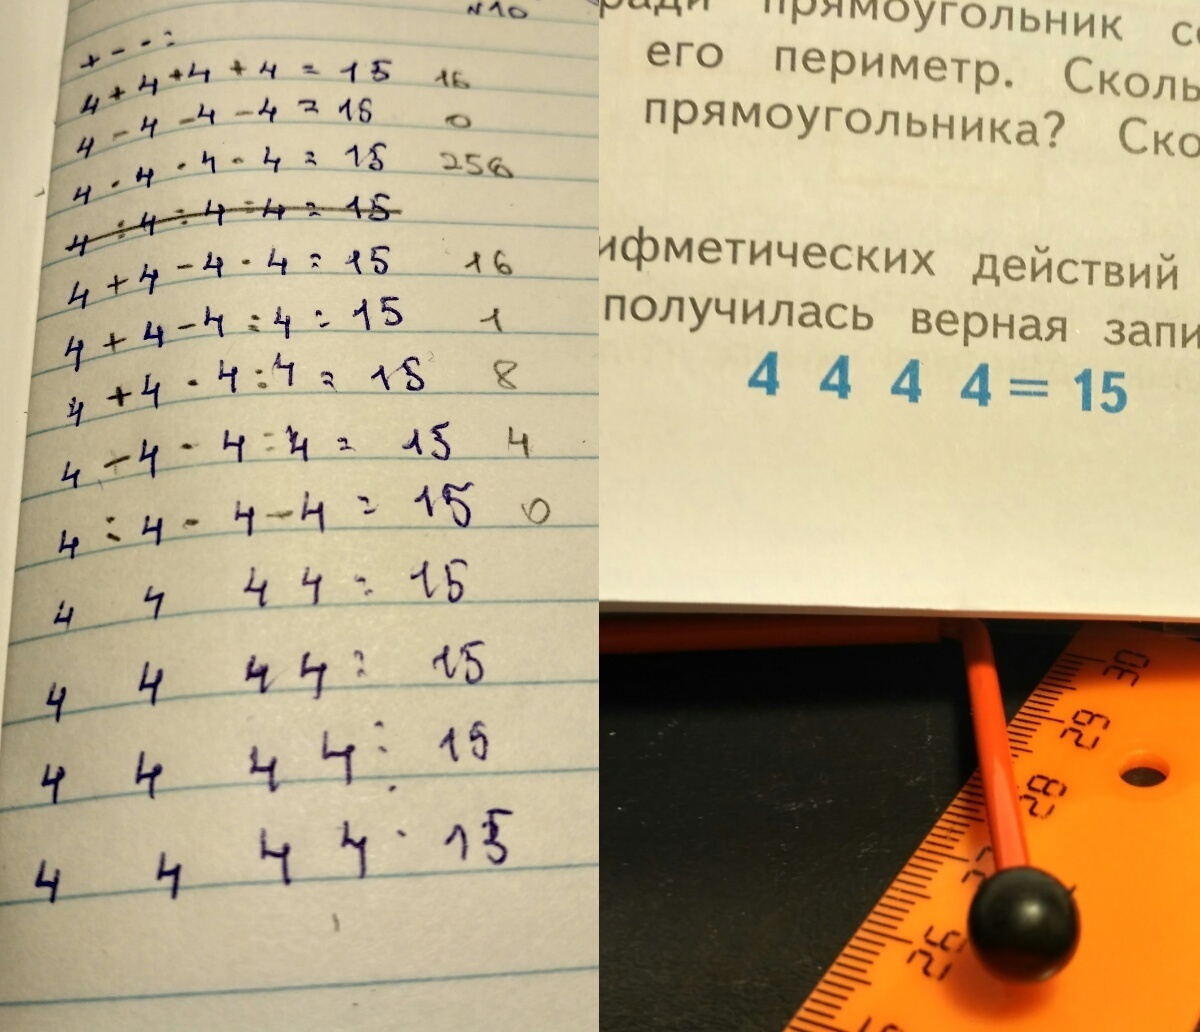 N10
+ - · :
4 + 4 + 4 + 4 = 15 16
4 - 4 - 4 - 4 = 15 0
4 · 4 · 4 · 4 = 15 256
4 : 4 : 4 : 4 = 15
4 + 4 - 4 · 4 = 15 16
4 + 4 - 4 : 4 = 15 1
4 + 4 · 4 : 4 = 15 8
4 - 4 · 4 : 4 = 15 4
4 : 4 · 4 - 4 = 15 0
4 4 4 4 = 15
4 4 4 4 = 15
4 4 4 4 = 15
4 4 4 4 · 15
прямоугольник
его периметр. Сколь
прямоугольника? Ско
ифметических действий
получилась верная запи
4 4 4 4 = 15
30
29
28
26